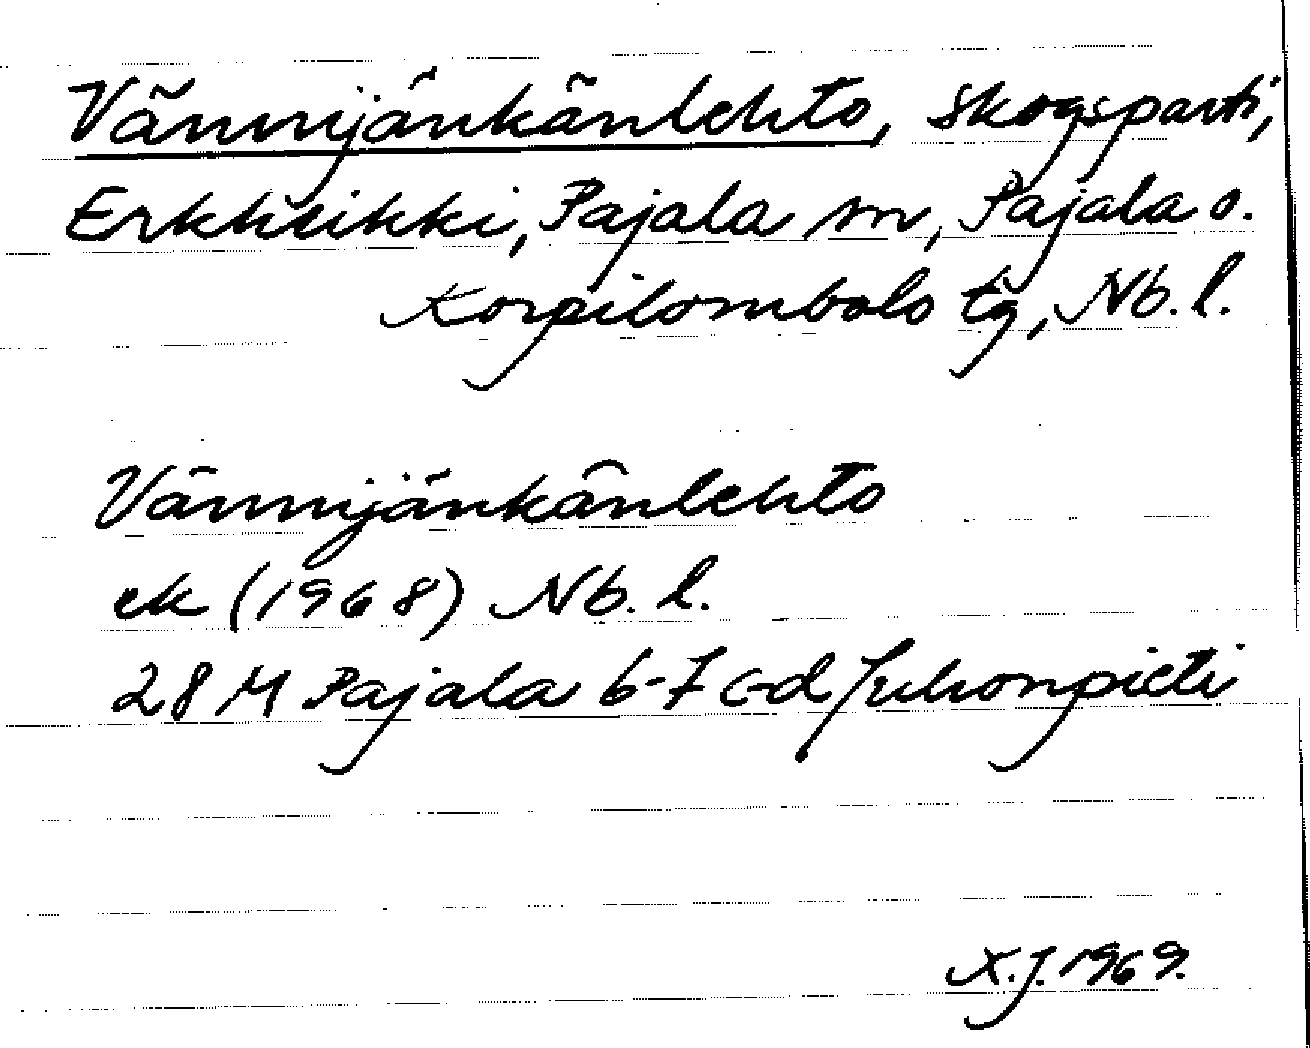 Vännijänkänlehto, skogsparti,
Erkheikki, Pajala sn, Pajala o.
Korpilombolo tg, Nb. l.
Vännijänkänlehto
ek (1968) Nb. l.
28 M Pajala 6-7 c-d Juhonpieti
K.J. 1969.